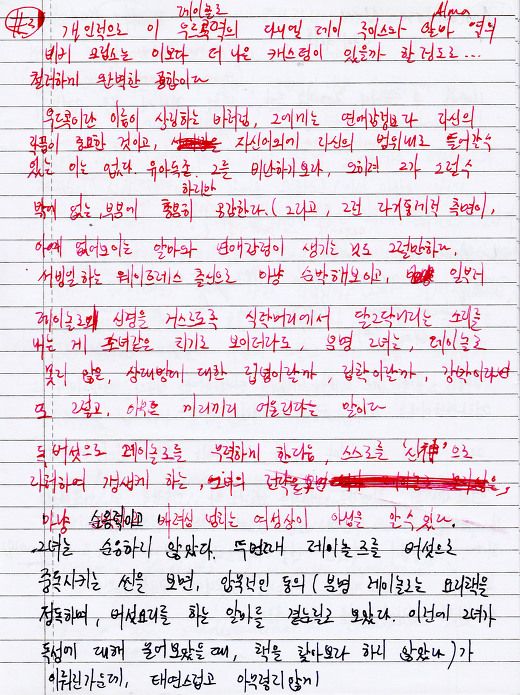 #3
레이놀즈 Alma
개인적으로 이 우드콕역의 다니엘 데이 루이스와 알마 역의
비키 크립스는 이보다 더 나은 캐스팅이 있을까 할정도로...
철저하게 완벽한 조합이다
우드콕이란 이름이 상징하는 바처럼, 그에게는 연애감정보다 자신의
작품이 중요한 것이고, 자신이외에 자신의 범위내로 들어갈수
있는 이는 없다. 유아독존. 그를 비난하기보다, 오히려 그가 그럴수
하리만
밖에 없는 부분에 충분히 공감한다. (그리고, 그런 다가동체적 측면이,
아예 없어보이는 알마와 연애감정이 생기는 것도 그럴만하다.
서빙일하는 웨이트레스 출신으로 마냥 순박해보이고, 일부러
레이놀즈의 신경을 거스르도록 식탁머리에서 달그락거리는 소리를
내는 게 소녀같은 치기로 보이더라도, 분명 그녀는, 레이놀즈
못지 않은, 상대방에 대한 집념이랄까, 집착이랄까, 강박이라면
또 그렇고, 아무튼 끼리끼리 어울린다는 말이다
독버섯으로 레이놀즈를 무력하게 한다음, 스스로를 '신神'으로
자처하며 갱생케 하는, 그녀의 전략을
마냥 순응적이고 배려심 넘치는 여성상이 아님을 알수 있다.
그녀는 순응하지 않았다. 두번째 레이놀즈를 버섯으로
중독시키는 씬을 보면, 암묵적인 동의(분명 레이놀즈는 요리책을
정독하며, 버섯요리를 하는 알마를 곁눈질로 보았다. 이전에 그녀가
독성에 대해 물어보았을 때, 책을 찾아보라 하지 않았나)가
이뤄진가운데, 태연스럽고 아무렇지않게